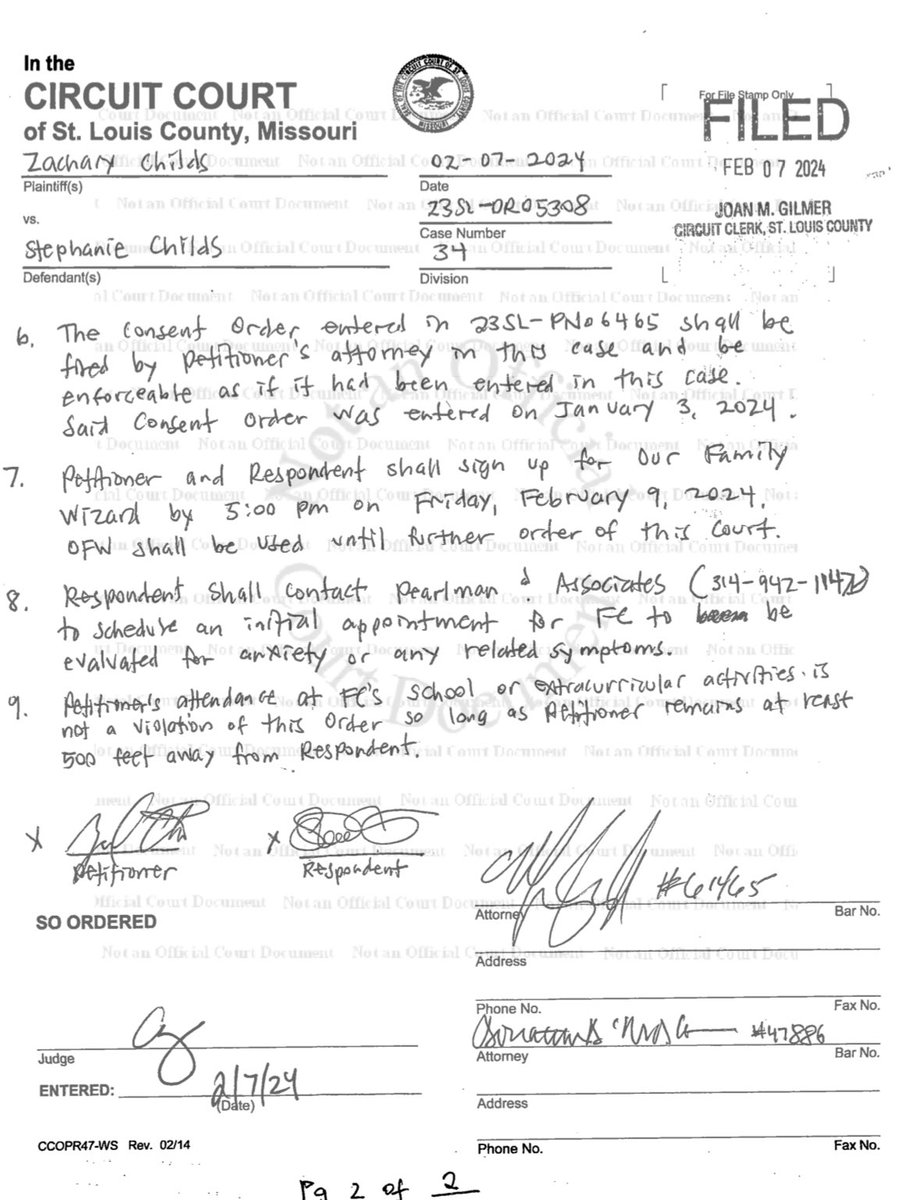 In the
CIRCUIT COURT
of St. Louis County, Missouri
For File Stamp Only
FILED
FEB 07 2024
JOAN M. GILMER
CIRCUIT CLERK, ST. LOUIS COUNTY
Zachary Childs
Plaintiff(s)
vs.
Stephanie Childs
Defendant(s)
02-07-2024
Date
23SL-DR05308
Case Number
34
Division
6. The Consent Order entered in 23SL-PN06465 shall be
filed by petitioner's attorney in this case and be
enforceable as if it had been entered in this case.
Said Consent Order was entered on January 3, 2024.
7. Petitioner and Respondent shall sign up for Our Family
Wizard by 5:00 pm on Friday, February 9, 2024.
OFW shall be used until further order of this Court.
8. Respondent shall contact Pearlman & Associates (314-942-1147)
to schedule an initial appointment for FC to be
evaluated for anxiety or any related symptoms.
9. Petitioner's attendance at FC's school or extracurricular activities is
not a violation of this Order so long as Petitioner remains at least
500 feet away from Respondent.
X
Petitioner
X
Respondent
#61465
Attorney Bar No.
SO ORDERED
Address
Phone No. Fax No.
#47886
Attorney Bar No.
Judge
ENTERED: 2/7/24
(Date)
Address
Phone No. Fax No.
CCOPR47-WS Rev. 02/14
Pg 2 of 2
Not an Official Court Document